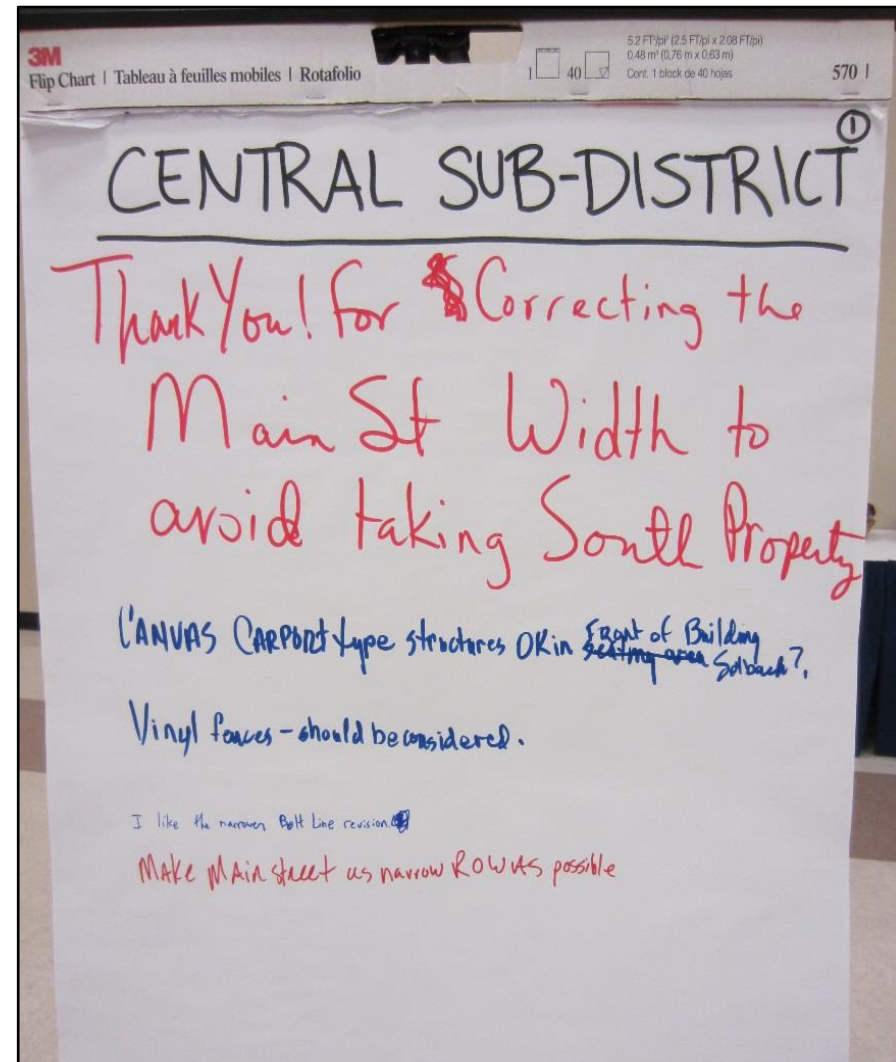 3M
Flip Chart | Tableau à feuilles mobiles | Rotafolio
1 40
5.2 FT²/pi² (2.5 FT/pi x 2.08 FT/pi)
0.48 m² (0,76 m x 0,63 m)
Cont. 1 block de 40 hojas
570 |
1
CENTRAL SUB-DISTRICT
Thank You! for Correcting the
Main St Width to
avoid taking South Property
CANVAS CARPORT type structures OK in Front of Building
seating area Setback?
Vinyl fences - should be considered.
I like the narrower Belt Line revision
MAKE MAIN street as narrow ROW AS possible